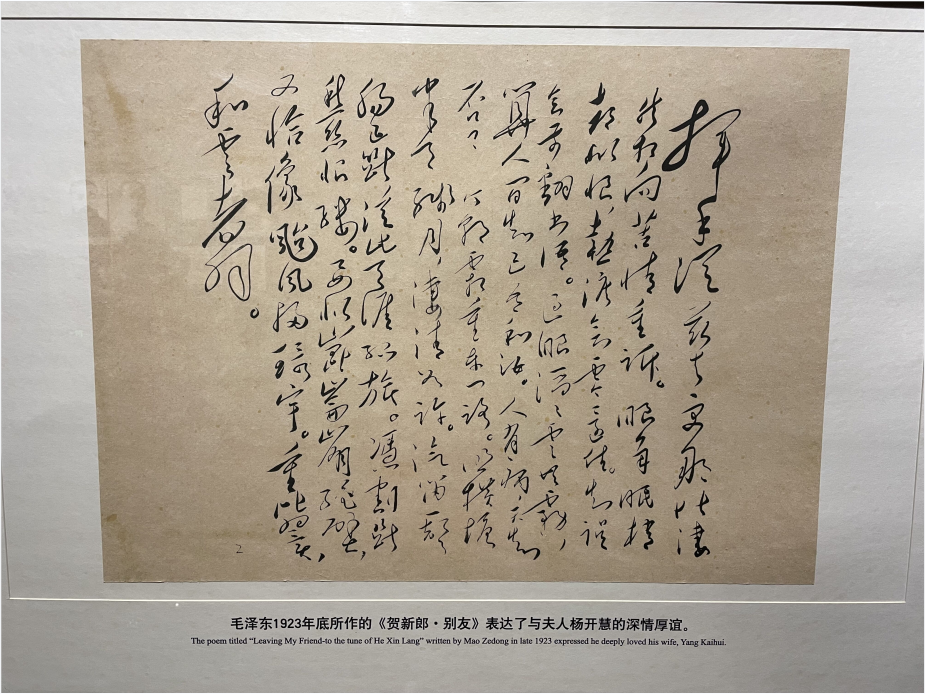 揮手從茲去更那堪淒
然相向苦情重訴。眼角眉梢
都似恨,熱淚欲零還住。知誤
會前翻書語。過眼滔滔雲共霧,
算人間知己吾和汝。人有病天知
否? 今朝霜重東門路。照橫塘
半天殘月淒清如許。汽笛一聲
腸已斷從此天涯孤旅。憑割斷
愁絲恨縷。要似崑崙崩絕壁,
又恰像颱風掃環宇。重比翼,
和雲翥。
2
毛泽东1923年底所作的《贺新郎·别友》表达了与夫人杨开慧的深情厚谊。
The poem titled “Leaving My Friend-to the tune of He Xin Lang” written by Mao Zedong in late 1923 expressed he deeply loved his wife, Yang Kaihui.